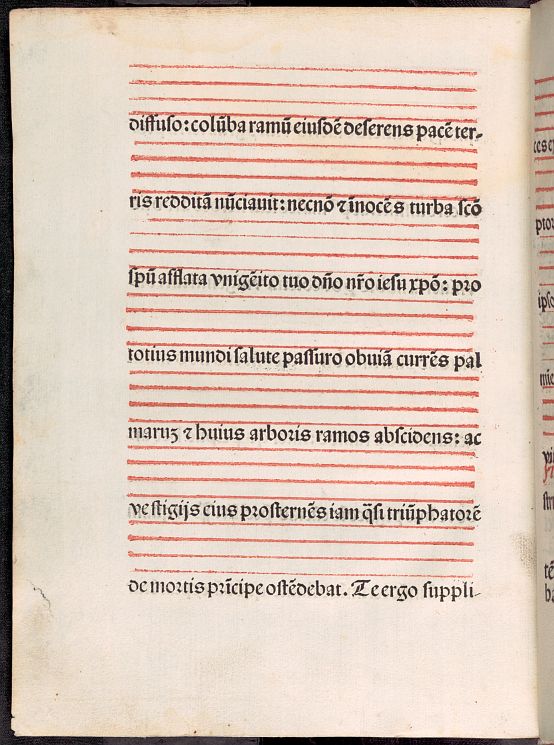 diffuso: colūba ramū eiusdē deferens pacē ter-
ris redditā nūciauit: necnō ⁊ īnocēs turba scō
spū afflata vnigēito tuo dño nr̄o iesu xpō: pro
totius mundi salute passuro obuiā currēs pal
maruꝫ ⁊ huius arboris ramos abscidens: ac
vestigijs eius prosternēs iam q̄si triūphatorē
de mortis prīcipe ostēdebat. Te ergo suppli-